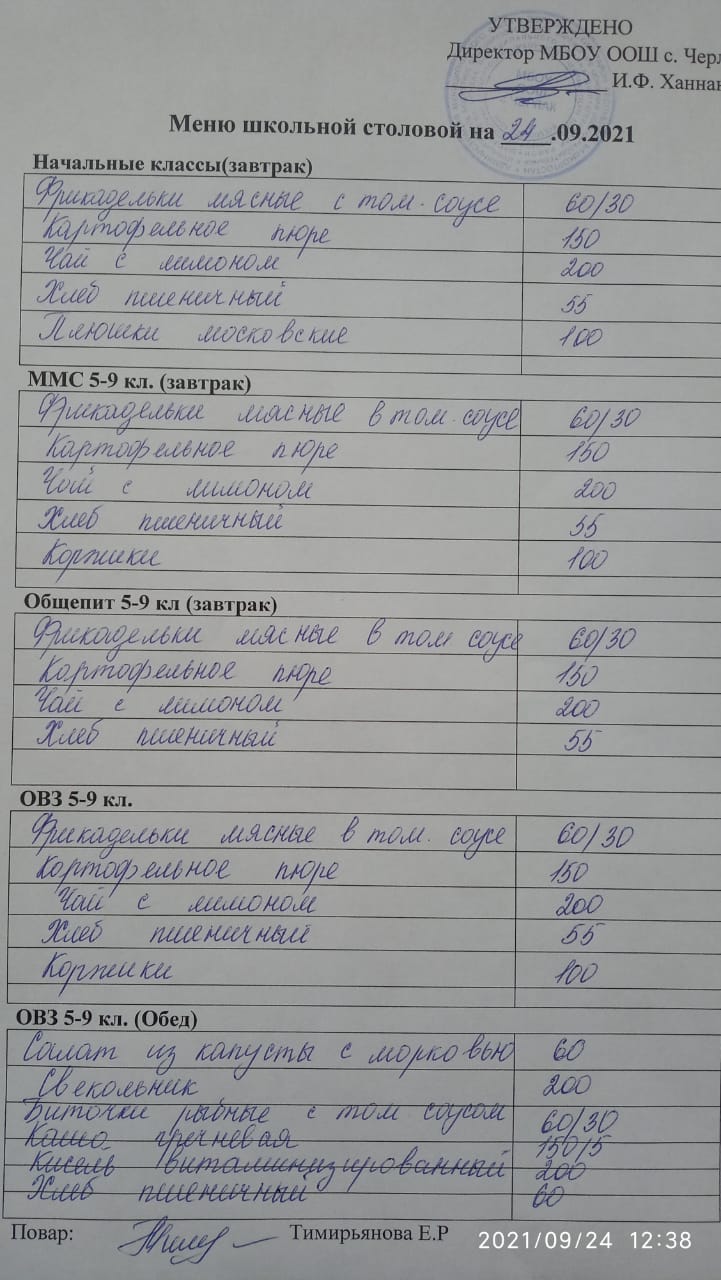 УТВЕРЖДЕНО
Директор МБОУ ООШ с. Черл
И.Ф. Ханнан
Меню школьной столовой на 24.09.2021
Начальные классы(завтрак)
Фрикадельки мясные с том. соусе 60/30
Картофельное пюре 150
Чай с лимоном 200
Хлеб пшеничный 55
Плюшки московские 100
ММС 5-9 кл. (завтрак)
Фрикадельки мясные в том. соусе 60/30
Картофельное пюре 150
Чай с лимоном 200
Хлеб пшеничный 55
Коржики 100
Общепит 5-9 кл (завтрак)
Фрикадельки мясные в том соусе 60/30
Картофельное пюре 150
Чай с лимоном 200
Хлеб пшеничный 55
ОВЗ 5-9 кл.
Фрикадельки мясные в том. соусе 60/30
Картофельное пюре 150
Чай с лимоном 200
Хлеб пшеничный 55
Коржики 100
ОВЗ 5-9 кл. (Обед)
Салат из капусты с морковью 60
Свекольник 200
Биточки рыбные с том соусом 60/30
Каша гречневая 150/5
Кисель витаминизированный 200
Хлеб пшеничный 60
Повар: Тимирьянова Е.Р
2021/09/24 12:38